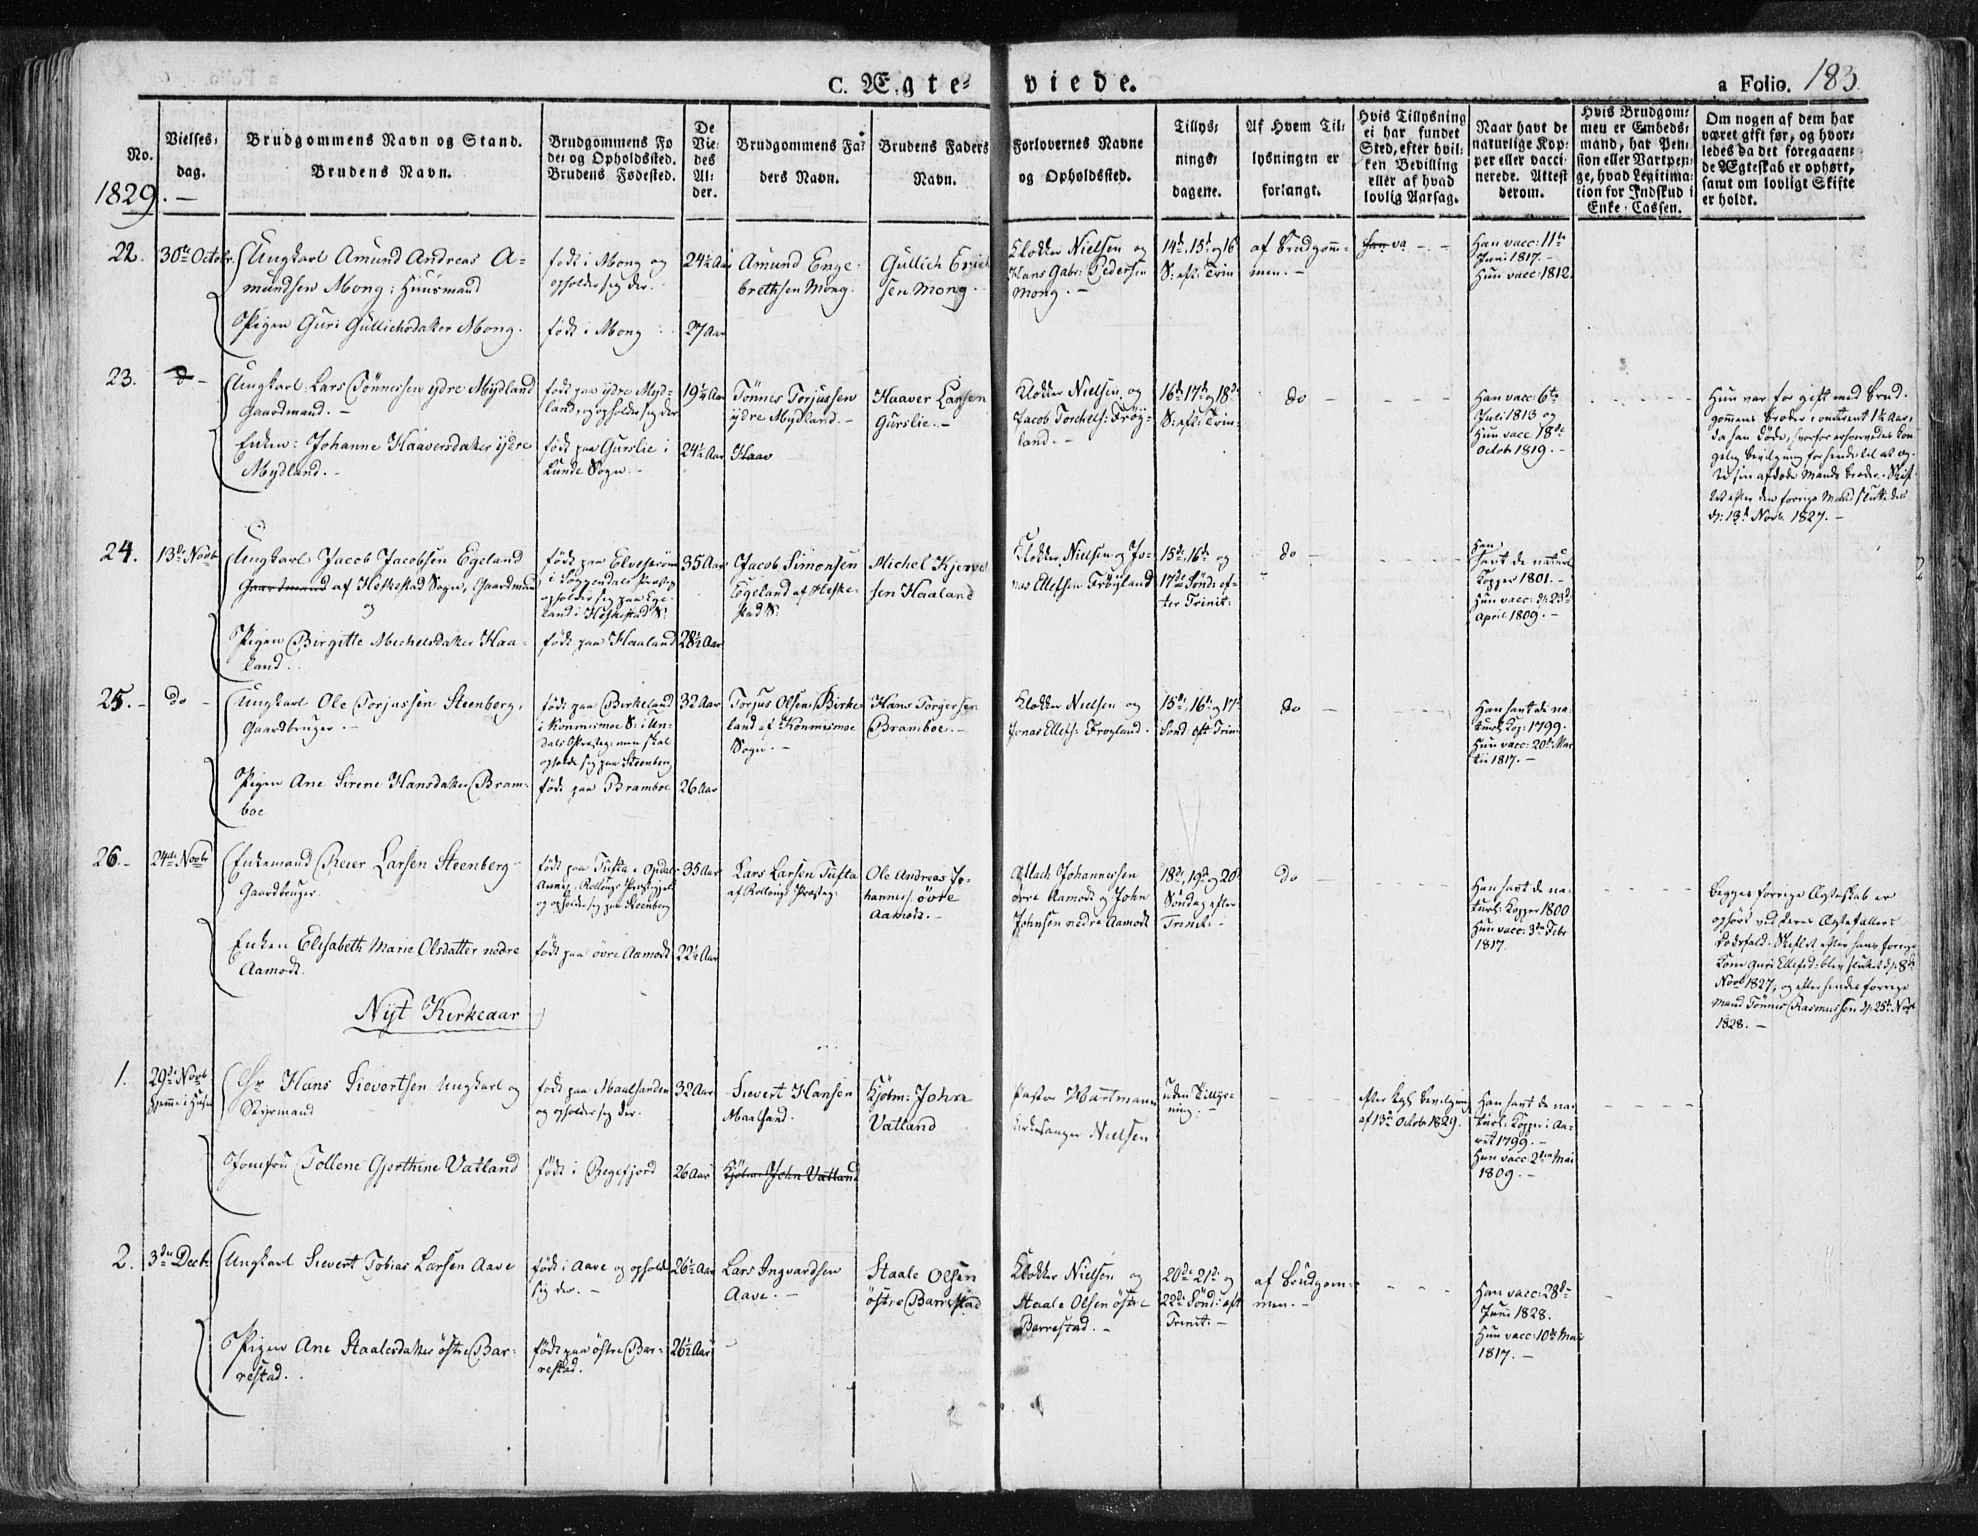 C. Ægte-
viede.
a Folio. 183.
No.
Vielses-
dag.
Brudgommens Navn og Stand.
Brudens Navn.
Brudgommens Fø
de- og Opholdssted.
Brudens Fødested.
De
Vie-
des
Al-
der.
Brudgommens Fa-
ders Navn.
Brudens Faders
Navn.
Forlovernes Navne
og Opholdssted.
Tillys-
nings-
dagene.
Af Hvem Til-
lysningen er
forlangt.
Hvis Tillysning
ei har fundet
Sted, efter hvil-
ken Bevilling
eller af hvad
lovlig Aarsag.
Naar havt de
naturlige Kop-
per eller vacci-
nerede. Attest
derom.
Hvis Brudgom-
men er Embeds-
mand, har Pen-
sion eller Vartpen-
ge, hvad Legitima-
tion for Indskud i
Enke-Cassen.
Om nogen af dem har
været gift før, og hvor-
ledes da det foregaaen-
de Ægteskab er ophørt,
samt om lovligt Skifte
er holdt.
1829. —
22.
30te Octobr.
Ungkarl Amund Andreas A-
mundsen Mong: Huusmand
Pigen Guri Gullichsdatter Mong.
født i Mong og
opholder sig der.
født i Mong
24½ Aar
27 Aar
Amund Enge-
brethsen Mong.
Gullich Erich
sen Mong.
Klokker Nielsen og
Hans Gabr: Pedersen
Mong. —
14de, 15de og 16de
S: eft: Trin
af Brudgom-
men. —
Han vacc: 11te
Juni 1817. —
Hun vacc: 1812.
23.
do —
Ungkarl Lars Tönnessen ydre Mydland
Gaardmand. —
Enken: Johanne Haaversdatter ydre
Mydland. —
født paa ydre Myd-
land, og opholder sig der
født paa Gurslie i
Lunde Sogn. —
19½ Aar
24½ Aar
Tönnes Torjussen
ydre Mydland. —
Haav
Haaver Larsen
Gurslie. —
Klokker Nielsen, og
Jacob Torchels: Fröy-
land. —
16de 17de og 18de
S: eft: Trin-
do —
Han vacc: 6te
Juli 1813 og
Hun vacc: 18de
Octobr 1819. —
Hun var før gift med Brud-
gommens Broder i omtrent 1½ Aar,
da han døde, hvorfor erhvervedes kon-
gelig Bevilgning for hende til at æg-
te sin afdøde Mands Broder. Skif-
tet efter den forrige Mand sluttedes
d: 13de Novb. 1827. —
24.
13de Novbr
Ungkarl Jacob Jacobsen Egeland
Gaardmand af Heskestad Sogn, Gaardmand
og
Pigen Birgitte Michelsdatter Haa-
land.
født paa
i Soggendals Præsteg
opholder sig paa Ege-
land i Heskestad S:
født paa Haaland
35 Aar
28½ Aar
Jacob Simonsen
Egeland af Heske-
stad S:
Michel Kjervel
sen Haaland
Klokker Nielsen og Jo-
nas Ellefsen Fröyland
15de, 16de og
17de Sönd: ef-
ter Trinit:
do —
Han
havt de naturl
Kopper 1801. —
Hun vacc: d: 23de
April 1809. —
25. —
do —
Ungkarl Ole Torjussen Steenberg,
Gaardbruger. —
Pigen Ane Sirene Hansdatter Bram-
boe
født paa Birkeland
i Konnismoe S: i Un-
dals Præsteg: men skal
opholde sig paa Steenberg
født paa Bramboe
32 Aar
26 Aar
Torjus Olsen Birke
land af Konnismoe
Sogn. —
Hans Torgersen
Bramboe. —
Klokker Nielsen og
Jonas Ellefs: Frogland.
15de, 16de og 17de
Sönd: eft Trin:
do —
Han havt de na-
turl: Kop: 1799.
Hun vacc: 20de Mar
tii 1817. —
26. —
24de Novbr
Enkemand Reier Larsen Steenberg
Gaardbruger.
Enken Elisabeth Marie Olsdatter nedre
Aamodt.
født paa Tufta i Opdals
Annex, Rollougs Præstegjeld
og opholder sig paa Steenberg
født paa övre Aamodt
35 Aar
22½ Aar
Lars Larsen Tufta
af Rollougs Præsteg:
Ole Andreas Jo-
hannes: övre
Aamodt. —
Atlach Johannessen
övre Aamodt og John
Johnsen nedre Aamodt
18de, 19de og 20de
Søndag efter
Trinit: —
do —
Han havt de na-
turl: Kopper 1800
Hun vacc: 3de Febr
1817.
Begges forrige Ægteskab er
ophört ved deres Ægtefællers
Dødsfald. Skiftet efter hans forrige
Kone Guri Ellefsd: blev sluttet d: 8de
Novb 1827, og efter hendes forrige
Mand Tönnes Rasmussen d: 25de Novb
1828. —
Nyt Kirkeaar
1.
29de Novb
hjemme i Huset
Hr Hans Sievertsen Ungkarl og
Styrmand
Jomfru Tollene Gjerthine Vatland
født paa Maalsanden
og opholder sig der.
født i Regefjord
32 Aar
26 Aar
Sievert Hansen
Maalsand.
Kjöbm: John Vatland
Kjöbm: John
Vatland
Pastor Hartmann
Kirkesanger Nielsen
uden Tillys-
ning. —
efter kgl: Bevilgning
af 13de Octobr 1829.
Han havt de na-
turl: Kopper i Aa-
ret 1799. —
Hun vacc: 2den Mai
1809. —
2.
3die Decbr:
Ungkarl Sievert Tobias Larsen Aave
Pigen Ane Staalesdatter östre Bar-
restad.
født i Aave og opholder
sig der. —
født paa östre Bar-
restad.
26½ Aar
26½ Aar
Lars Ingvardsen
Aave. —
Staale Olsen
östre Barrestad
Klokker Nielsen og
Staale Olsen östre
Barrestad. —
20de 21de og
22de Sönd: eft
Trinit. —
af Brudgom-
men. —
Han vacc: 28de
Juni 1828.
Hun vacc: 10de Mai
1817. —